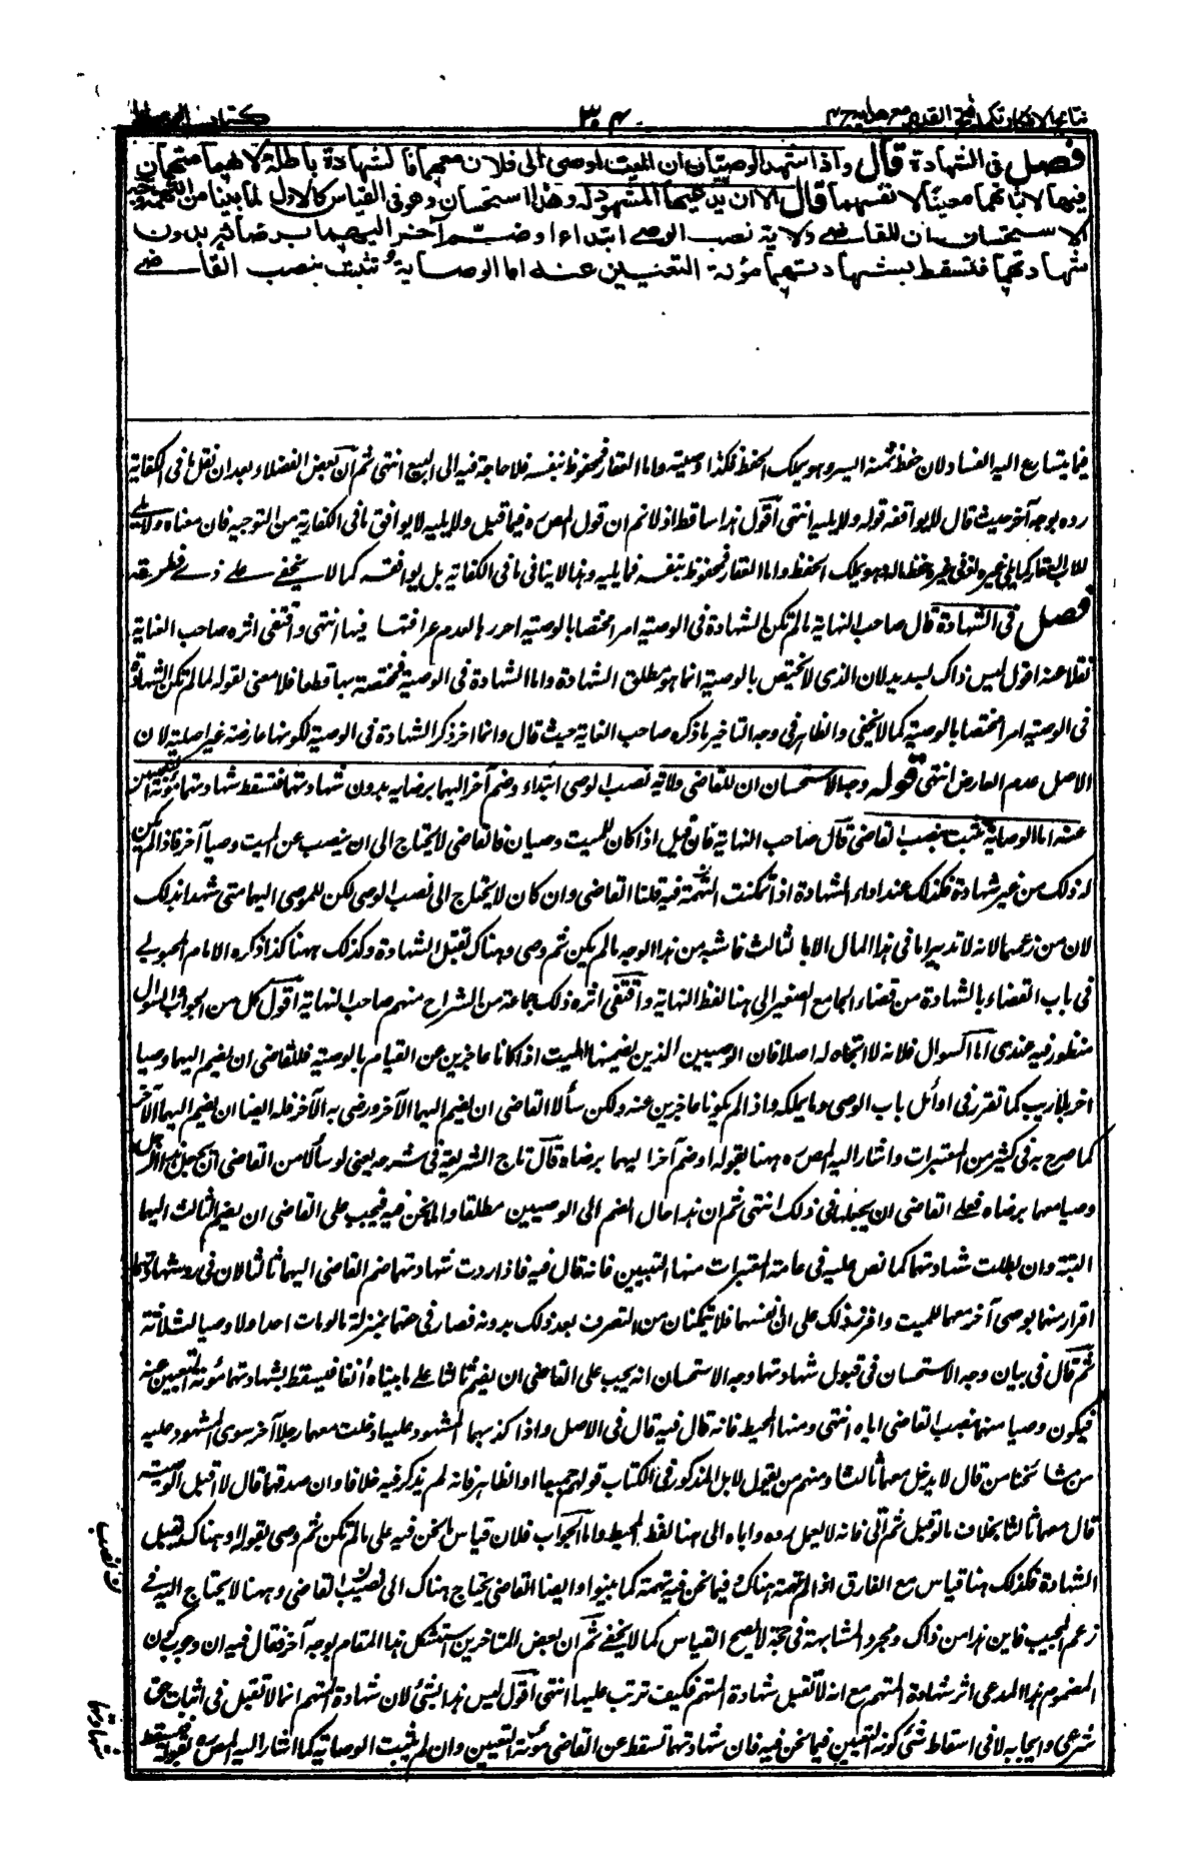 نتائج الافكار تكملة فتح القدير مع هداية ج ٤
٣٠٤
كتاب الوصايا
فصل فى الشهادة قال واذا شهد الوصيان ان الميت اوصى الى فلان معهما فالشهادة باطلة لانهما متهمان
فيها لاثباتهما معينا لانفسهما قال الا ان يدعيها المشهود له وهذا استحسان وهو فى القياس كالاول لما بينا من التهمة وجه
الاستحسان ان للقاضى ولاية نصب الوصى ابتداء او ضم آخر اليهما برضائه بدون
شهادتهما فتسقط بشهادتهما مؤنة التعيين عنه اما الوصاية تثبت بنصب القاضى
فيما يتسارع اليه الفساد لان حفظ ثمنه ايسر وهو يملك الحفظ فكذا وصيته واما العقار فمحفوظ بنفسه فلا حاجة فيه الى البيع انتهى ثم ان بعض الفضلاء بعد ان نقل ما فى الكفاية
رده بوجه آخر حيث قال لا يوافقه قوله ولا يليه انتهى اقول هذا ساقط اذ لا نم ان قول المص ره فيما قبل ولا يليه لا يوافق ما فى الكفاية من التوجيه فان معناه ولا يلى
للاب العقار كما يلى غيره وهو يملك الحفظ واما العقار فمحفوظ بنفسه فما يليه وهذا لا ينافى ما فى الكفاية بل يوافقه كما لا يخفى على ذى فطرة
فصل فى الشهادة قال صاحب النهاية لما لم تكن الشهادة فى الوصية امرا مختصا بالوصية اخر ربا لعدم عراقتها فيها انتهى واقتفى اثره صاحب العناية
نقلا عنه اقول ليس ذاك بسديد لان الذى لا يختص بالوصية انما هو مطلق الشهادة واما الشهادة فى الوصية فمختصة بها قطعا فلا معنى لقوله لما لم تكن الشهادة
فى الوصية امرا مختصا بالوصية كما لا يخفى والظاهر فى وجه التاخير ما ذكره صاحب الغاية حيث قال وانما اخر ذكر الشهادة فى الوصية لكونها عارضة غير اصلية لان
الاصل عدم العارض انتهى قوله وجه الاستحسان ان للقاضى ولاية نصب الوصى ابتداء وضم آخر اليهما برضايه بدون شهادتهما فتسقط شهادتهما مؤنة التعيين
عنه اما الوصاية تثبت بنصب القاضى قال صاحب النهاية فان قيل اذا كان للميت وصيان فالقاضى لا يحتاج الى ان ينصب عن الميت وصيا آخر فاذا لم يكن
له ذلك من غير شهادة فكذلك عند اداء الشهادة اذ تمكنت التهمة فيه قلنا القاضى وان كان لا يحتاج الى نصب الوصى لكن للموصى اليهما متى شهدا بذلك
لان من زعمهما لانه لا تدبير لنا فى هذا المال الا بالثالث فاشبه من هذا الوجه ما لم يكن ثم وصى وهناك تقبل الشهادة وكذلك ههنا كذا ذكره الامام المحبوبى
فى باب القضاء بالشهادة من قضاء الجامع الصغير الى هنا لفظ النهاية واقتفى اثره ذلك جماعة من الشراح منهم صاحب النهاية اقول كل من الجواب والسؤال
منظور فيه عندى اما السوال فلانه لا اتجاه له اصلا فان الوصيين الذين يضمهما الميت اذا كانا عاجزين عن القيام بالوصية فللقاضى ان يضم اليهما وصيا
آخر بلا ريب كما تقرر فى اوائل باب الوصى وما يملكه واذا لم يكونا عاجزين عنه ولكن سألا القاضى ان يضم اليهما الآخر ورضى به الآخر فله ايضا ان يضم اليهما الآخر
كما صرح به فى كثير من المعتبرات واشار اليه المص ره ههنا بقوله او ضم آخر اليهما برضاه قال تاج الشريعة فى شرحه يعنى لو سألا من القاضى ان يجعل هذا الرجل
وصيا معهما برضاه فعلى القاضى ان يجيبهما فى ذلك انتهى ثم ان هذا حال الضم الى الوصيين مطلقا واما نحن فيه فيجب على القاضى ان يضم الثالث اليهما
البتة وان بطلت شهادتهما كما نص عليه فى عامة المعتبرات منها التبيين فانه قال فيه فاذا ردت شهادتهما ضم القاضى اليهما ثالثا لان فى ضمن شهادتهما
اقرار منهما بوصى آخر معهما للميت واقرارهما بذلك على انفسهما فلا يتمكنان من التصرف بعد ذلك بدونه فصار فى حقهما بمنزلة ما لو مات احد اولاد وصيا الثلاثة
ثم قال فى بيان وجه الاستحسان فى قبول شهادتهما وجه الاستحسان انه يجب على القاضى ان يضم ثالثا على ما بيناه آنفا فيسقط بشهادتهما مؤنة التعيين عنه
فيكون وصيا معهما بنصب القاضى اياه انتهى ومنها المحيط فانه قال فيه قال فى الاصل واذا كذبهما المشهود عليه ادخلت معهما رجلا آخر سوى المشهود عليه
من مشائخنا من قال لا يدخل معهما ثالثا ومنهم من يقول لا بل المذكور فى الكتاب قولهم جميعا والظاهر فانه لم يذكر فيه خلافا وان صدقهما قال لا اقبل الوصية
قال معهما ثالثا بخلاف ما لو قبل ثم ابى فانه لا يعمل رده واباه الى هنا لفظ المحيط واما الجواب فلان قياس ما نحن فيه على ما لم تكن ثم وصى بقوله وهناك تقبل
الشهادة فكذلك هنا قياس مع الفارق اذ لا تهمة هناك وفيما نحن فيه تهمة كما بينوا وايضا القاضى يحتاج هناك الى نصيب القاضى وههنا لا يحتاج اليه فى
زعم المجيب فاين هذا من ذاك ومجرد المشابهة فى جهة لا يصح القياس كما لا يخفى ثم ان بعض المتاخرين استشكل هذا المقام بوجه آخر فقال فيه ان وجوب كون
المضموم هذا المدعى اثر شهادة المتهم مع انه لا تقبل شهادة المتهم فكيف ترتب عليها انتهى اقول ليس هذا بشئ لان شهادة المتهم انما لا تقبل فى اثبات حق
شرعى وايجابه لا فى اسقاط شئ كمؤنة التعيين فيما نحن فيه فان شهادتهما تسقط عن القاضى مؤنة التعيين وان لم يثبت الوصاية كما اشار اليه المص ره بقوله فتسقط
ن نصب
شهادتهما